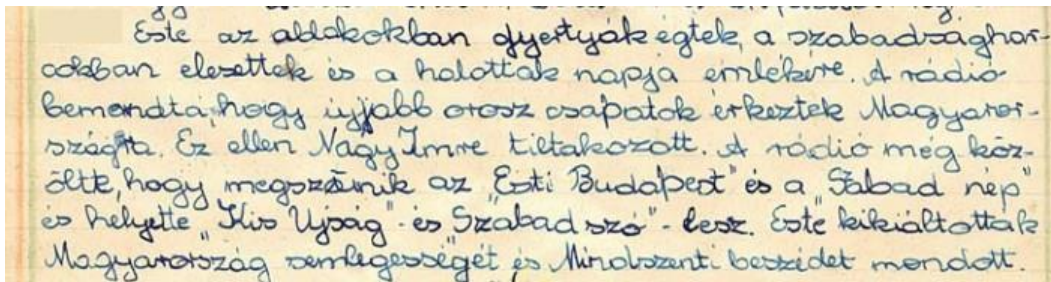 Este az ablakokban gyertyák égtek, a szabadsághar-
cokban elesettek és a halottak napja emlékére. A rádió
bemondta, hogy újjabb orosz csapatok érkeztek Magyaror-
szágra. Ez ellen Nagy Imre tiltakozott. A rádió még köz-
ölte, hogy megszűnik az "Esti Budapest" és a "Szabad nép"
és helyette "Kis Ujság" és "Szabad szó" - lesz. Este kikiáltották
Magyarország semlegességét és Mindszenti beszédet mondott.